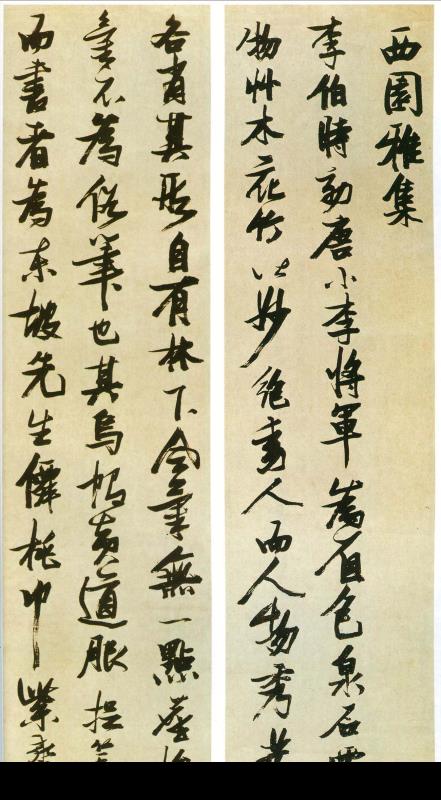 西園雅集
李伯時効唐小李將軍為着色泉石雲
物艸木花竹皆妙絕動人而人物秀發
各肖其形自有林下無一點塵埃
氣不為俗筆也其烏帽黃道服捉筆
而書者為東坡先生僊桃巾紫裘